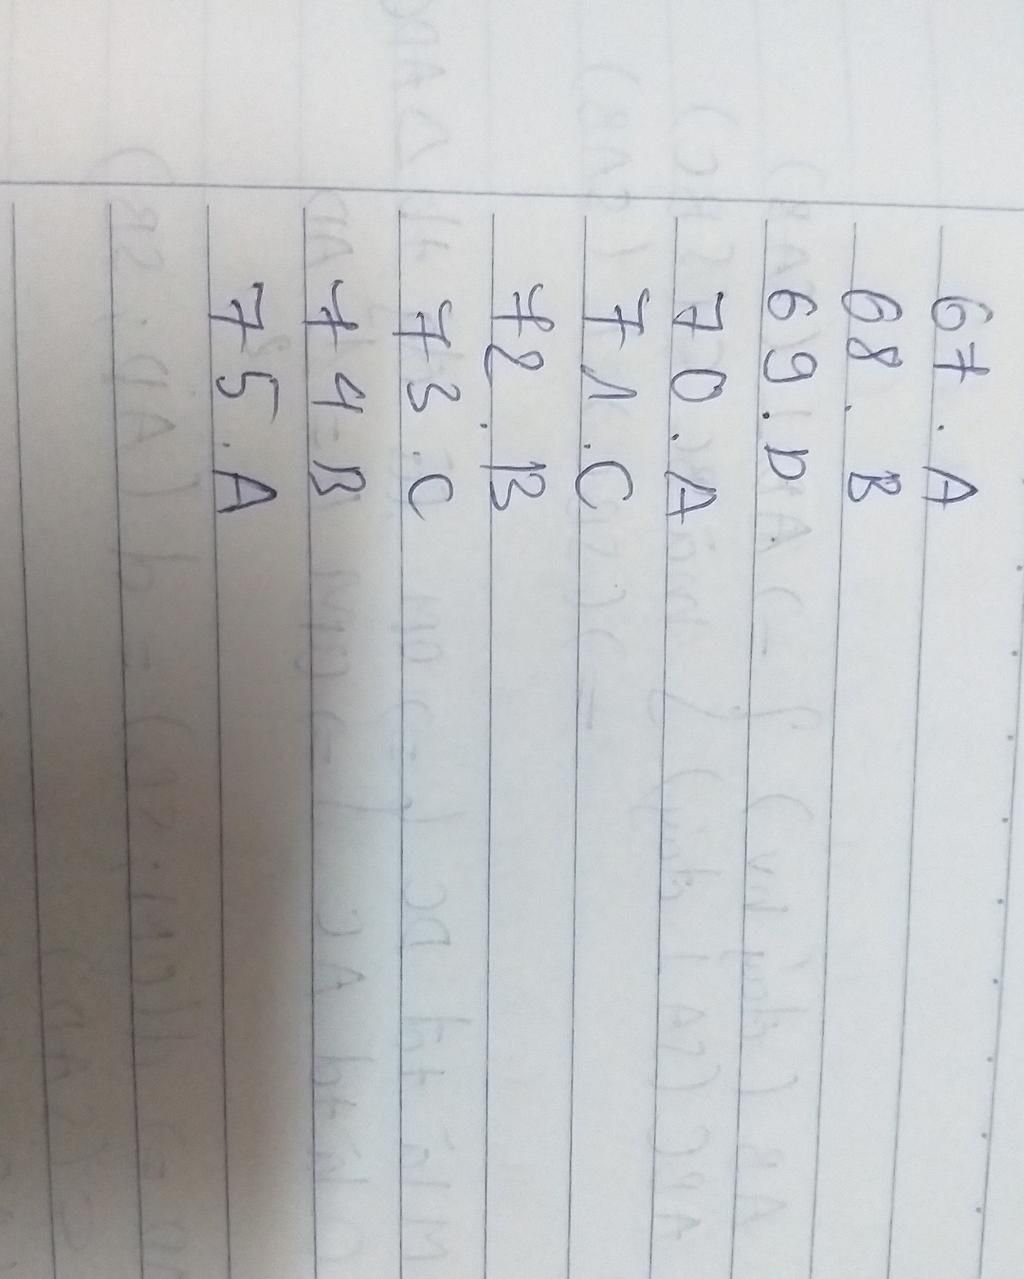 67. A
68. B
69. D
70. A
71. C
72. B
73. C
74. B
75. A